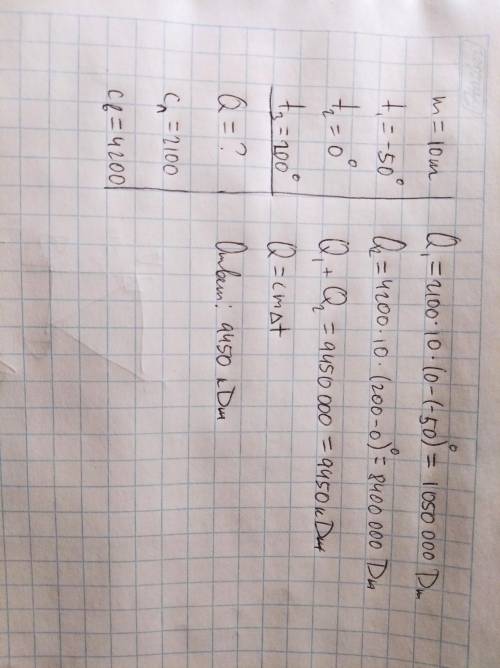 m = 10 т
t₁ = -50°
t₂ = 0°
t₃ = 200°
Q = ?
cл = 2100
cв = 4200
Q₁ = 2100 · 10 · (0 - (-50)° = 1050 000 Дж
Q₂ = 4200 · 10 · (200 - 0)° = 8400 000 Дж
Q₁ + Q₂ = 9450 000 = 9450 кДж
Q = cm Δt
Ответ: 9450 кДж